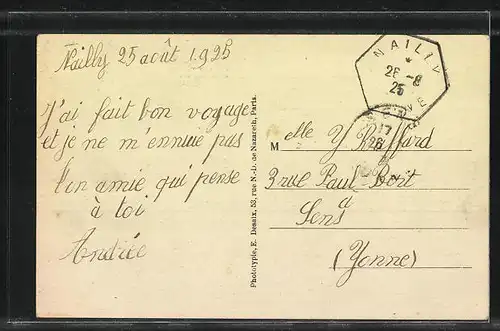 Nailly 25 août 1925
J'ai fait bon voyage
et je ne m'ennuie pas
Ton amie qui pense
à toi
Andrée
Phototypie, E. Desaix, 53, rue N.-D. de Nazareth, Paris.
NAILLY
*
26 -8
25
YONNE
17
26
Melle Y Raffard
3 rue Paul-Bert
à
Sens
(Yonne)